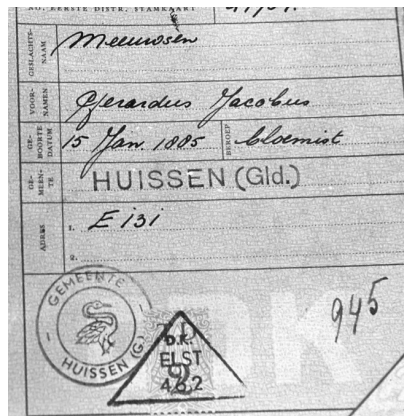 NO. EERSTE DISTR. STAMKAART
GESLACHTS-
NAAM
Meeuwsen
VOOR-
NAMEN
Gerardus Jacobus
GE-
BOORTE
DATUM
15 Jan. 1885
BEROEP
bloemist
GE-
MEEN-
TE
HUISSEN (Gld.)
ADRES
1. E 131
2.
GEMEENTE
HUISSEN (G.)
D.K.
ELST
462
945